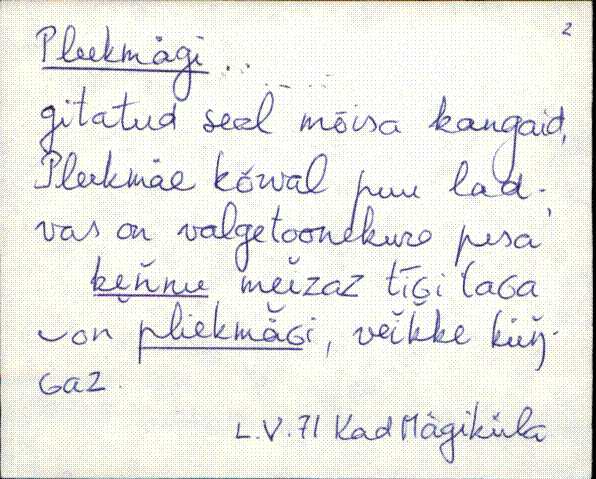 2
Pleekmägi
gitatud seal mõisa kangaid,
Pleekmäe kõrval puu lad-
vas on valgetoonekure pesa
keňnu meizaz tīGi taGa
on pliekmäGi, veikke küŋ-
Gaz.
L.V. 71 Kad Mägiküla